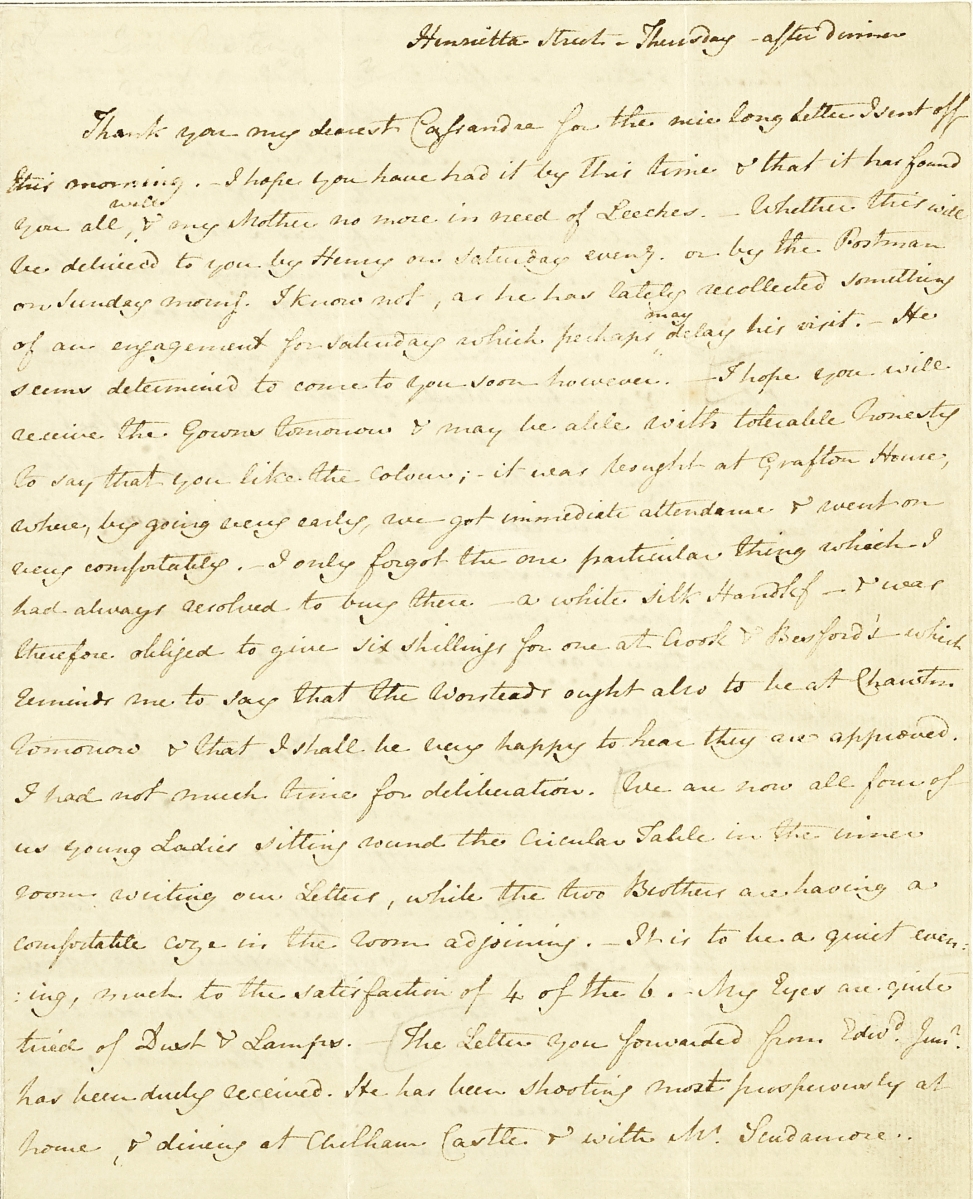 Henrietta Street – Thursday – after dinner
Thank you my dearest Cassandra for the nice long Letter I sent off
this morning. – I hope you have had it by this time & that it has found
you all well, & my Mother no more in need of Leeches. – Whether this will
be delivered to you by Henry on Saturday eveng. or by the Postman
on Sunday morng. I know not, as he has lately recollected something
of an engagement for Saturday which perhaps may delay his visit. – He
seems determined to come to you soon however. – I hope you will
receive the Gowns tomorrow & may be able with tolerable honesty
to say that you like the Colour; – it was bought at Grafton House,
where, by going very early, we got immediate attendance & went on
very comfortably. – I only forgot the one particular thing which I
had always resolved to buy there – a white silk Handkf – & was
therefore obliged to give six shillings for one at Crook & Besford's which
reminds me to say that the Worsteads ought also to be at Chawton
tomorrow & that I shall be very happy to hear they are approved.
I had not much time for deliberation. We are now all four of
us young Ladies sitting round the Circular Table in the inner
room writing our Letters, while the two Brothers are having a
comfortable coze in the room adjoining. – It is to be a quiet even:
:ing, much to the satisfaction of 4 of the 6. – My Eyes are quite
tired of Dust & Lamps. – The Letter you forwarded from Edwd. Junr.
has been duly received. He has been shooting most prosperously at
home, & dining at Chilham Castle & with Mr. Scudamore.